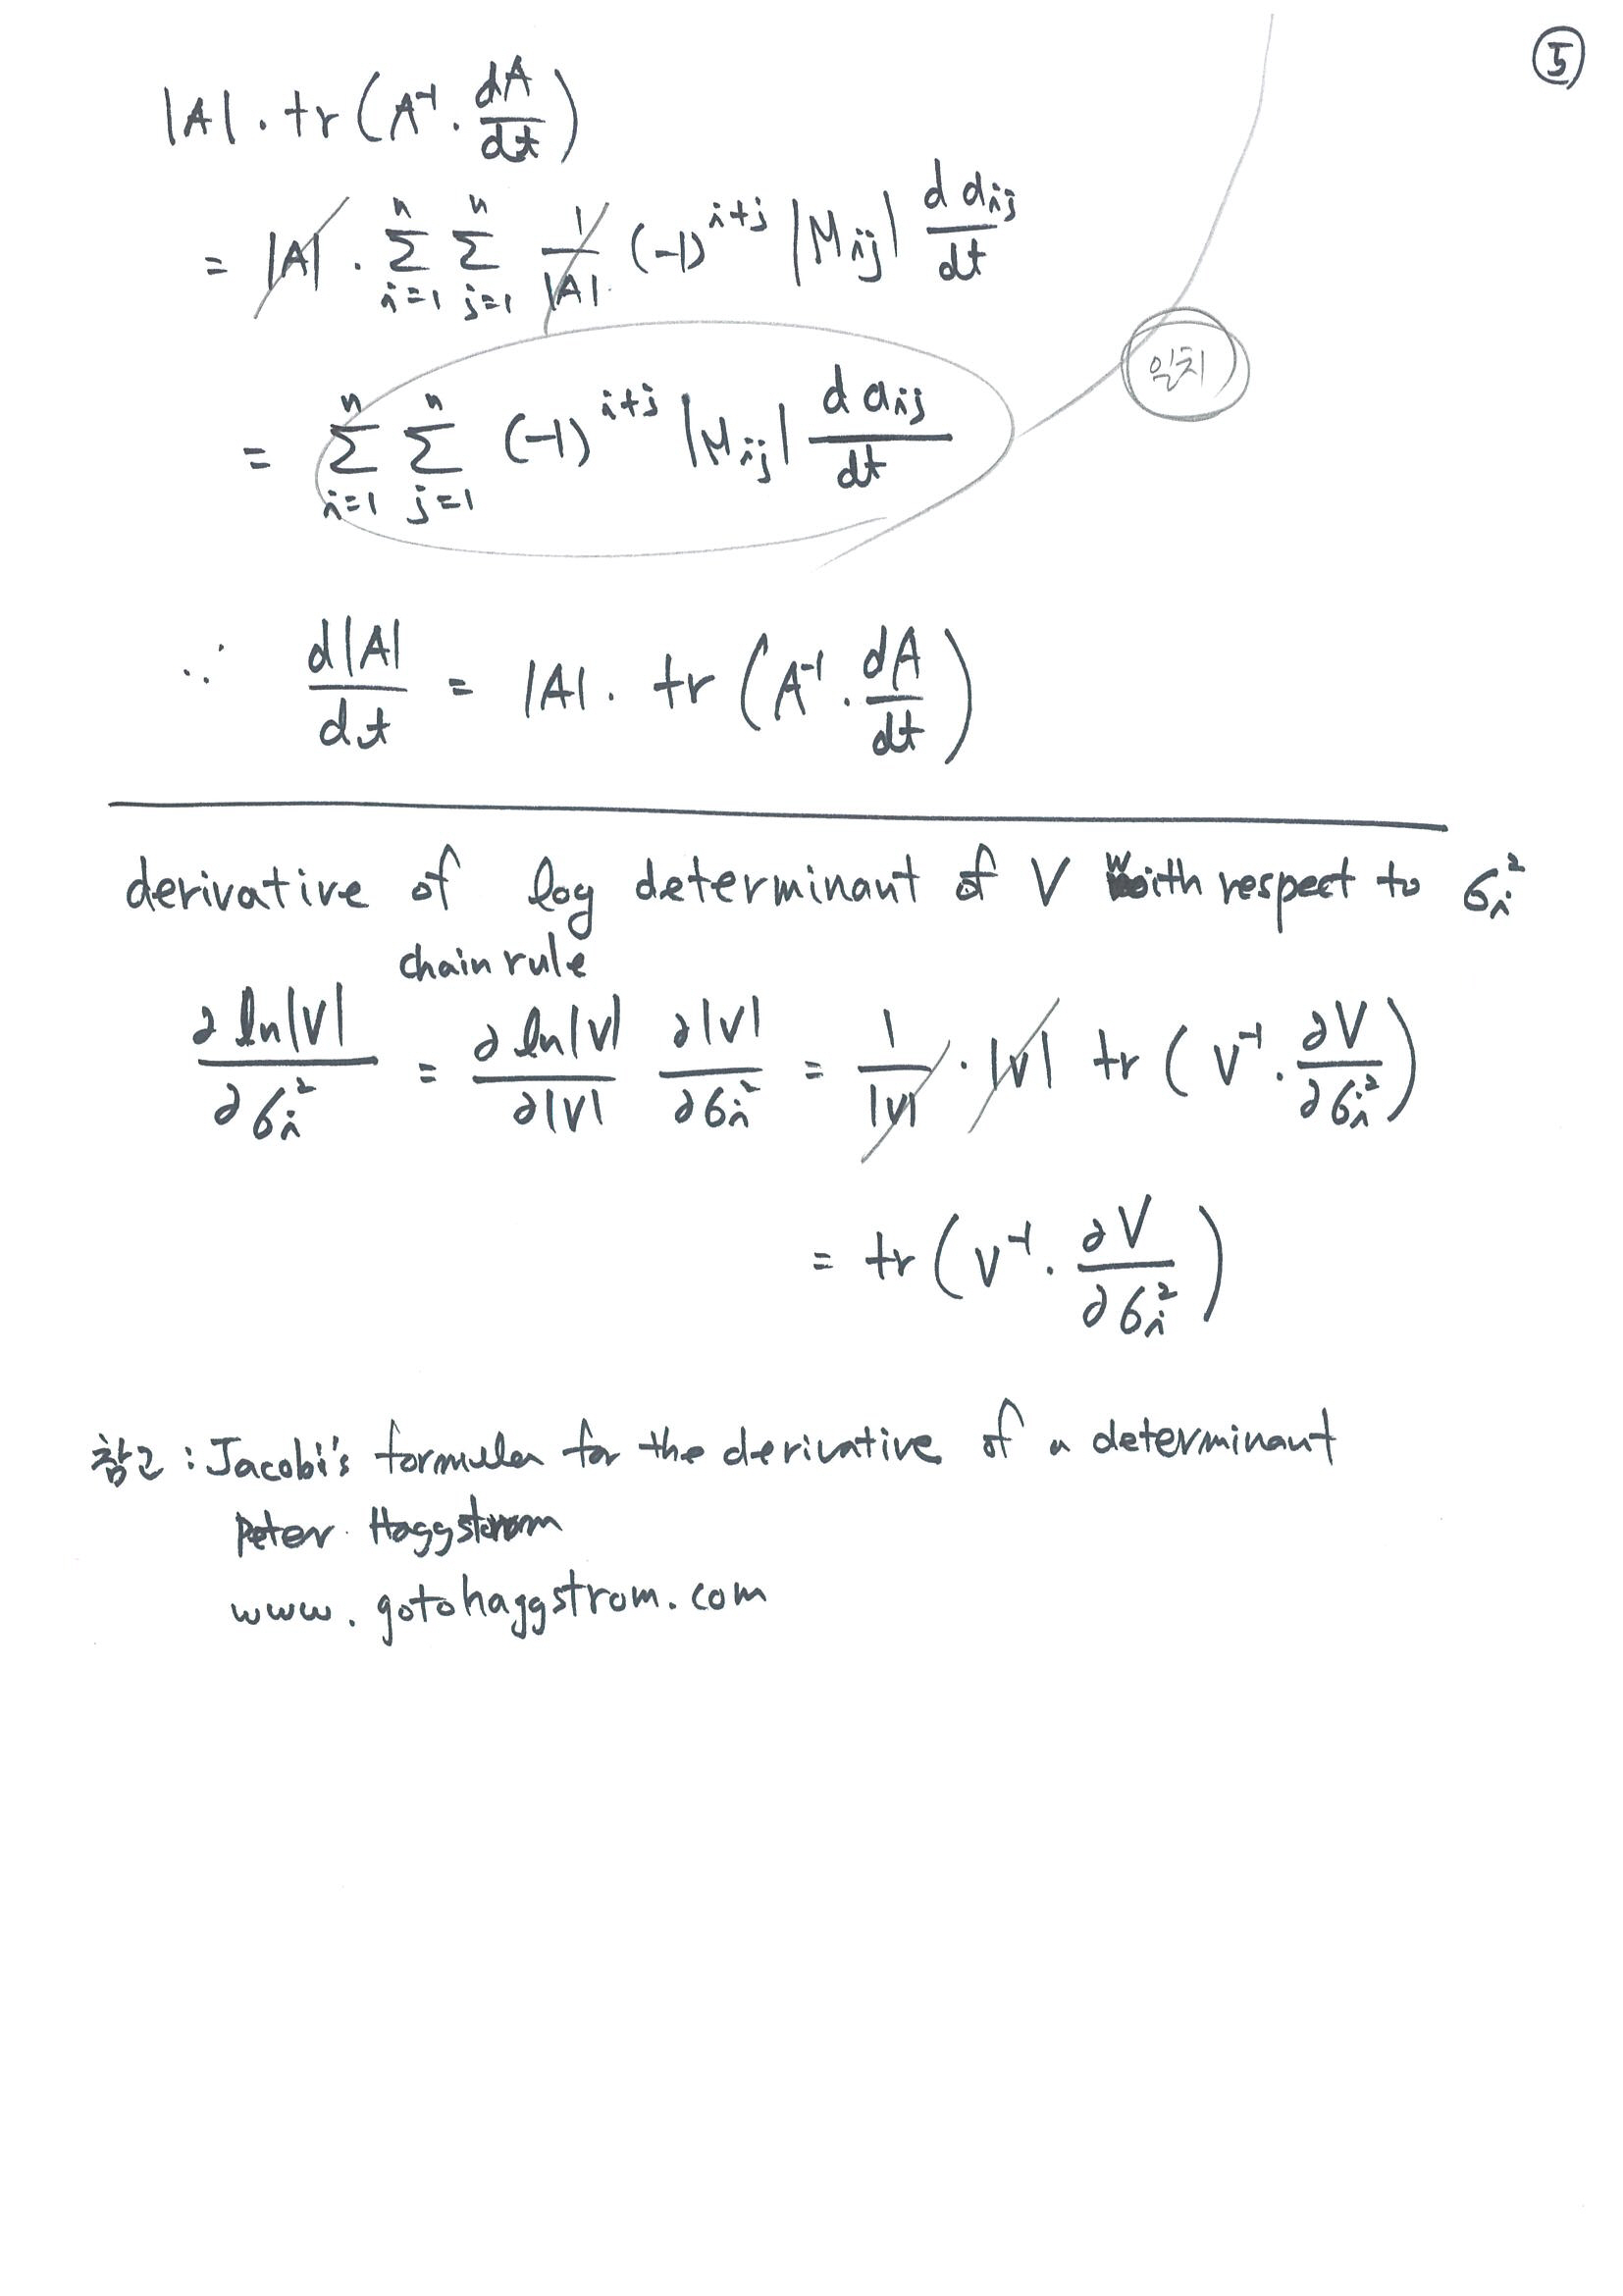 ⑤
|A| · tr(A⁻¹ · dA/dt)
= |A| · Σ_{i=1}^{n} Σ_{j=1}^{n} 1/|A| (-1)^{i+j} |M_{ij}| d a_{ij}/dt
일치
= Σ_{i=1}^{n} Σ_{j=1}^{n} (-1)^{i+j} |M_{ij}| d a_{ij}/dt
∵ d|A|/dt = |A| · tr(A⁻¹ · dA/dt)
derivative of log determinant of V with respect to σᵢ²
chain rule
∂ ln|V|/∂σᵢ² = ∂ ln|V|/∂|V| ∂|V|/∂σᵢ² = 1/|V| · |V| tr(V⁻¹ · ∂V/∂σᵢ²)
= tr(V⁻¹ · ∂V/∂σᵢ²)
참고 : Jacobi's formula for the derivative of a determinant
Peter Haggstrom
www.gotohaggstrom.com